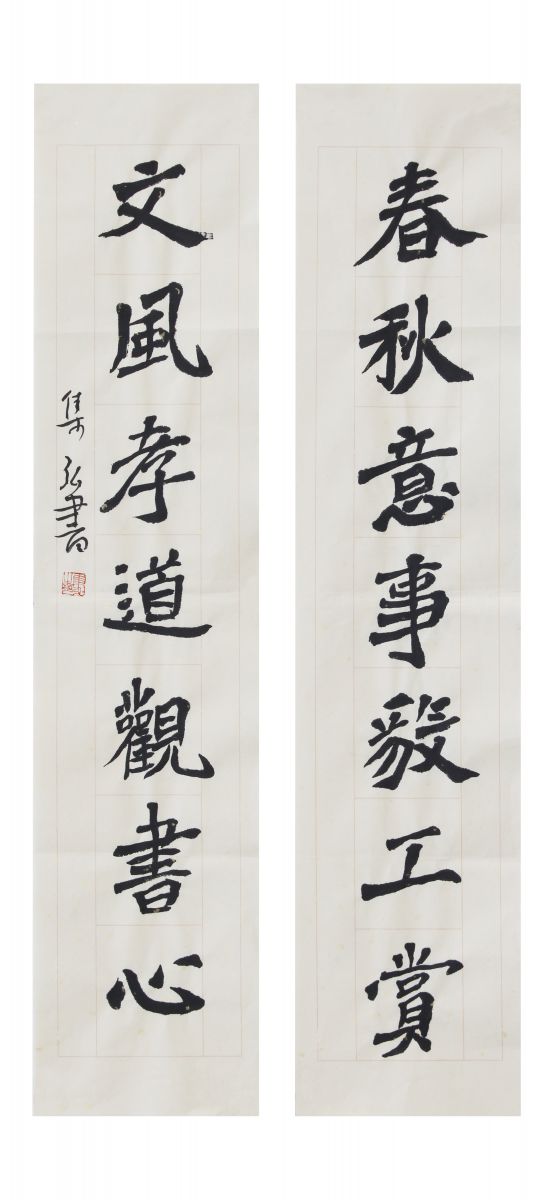 春秋意事毅工賞
文風孝道觀書心
集弘書